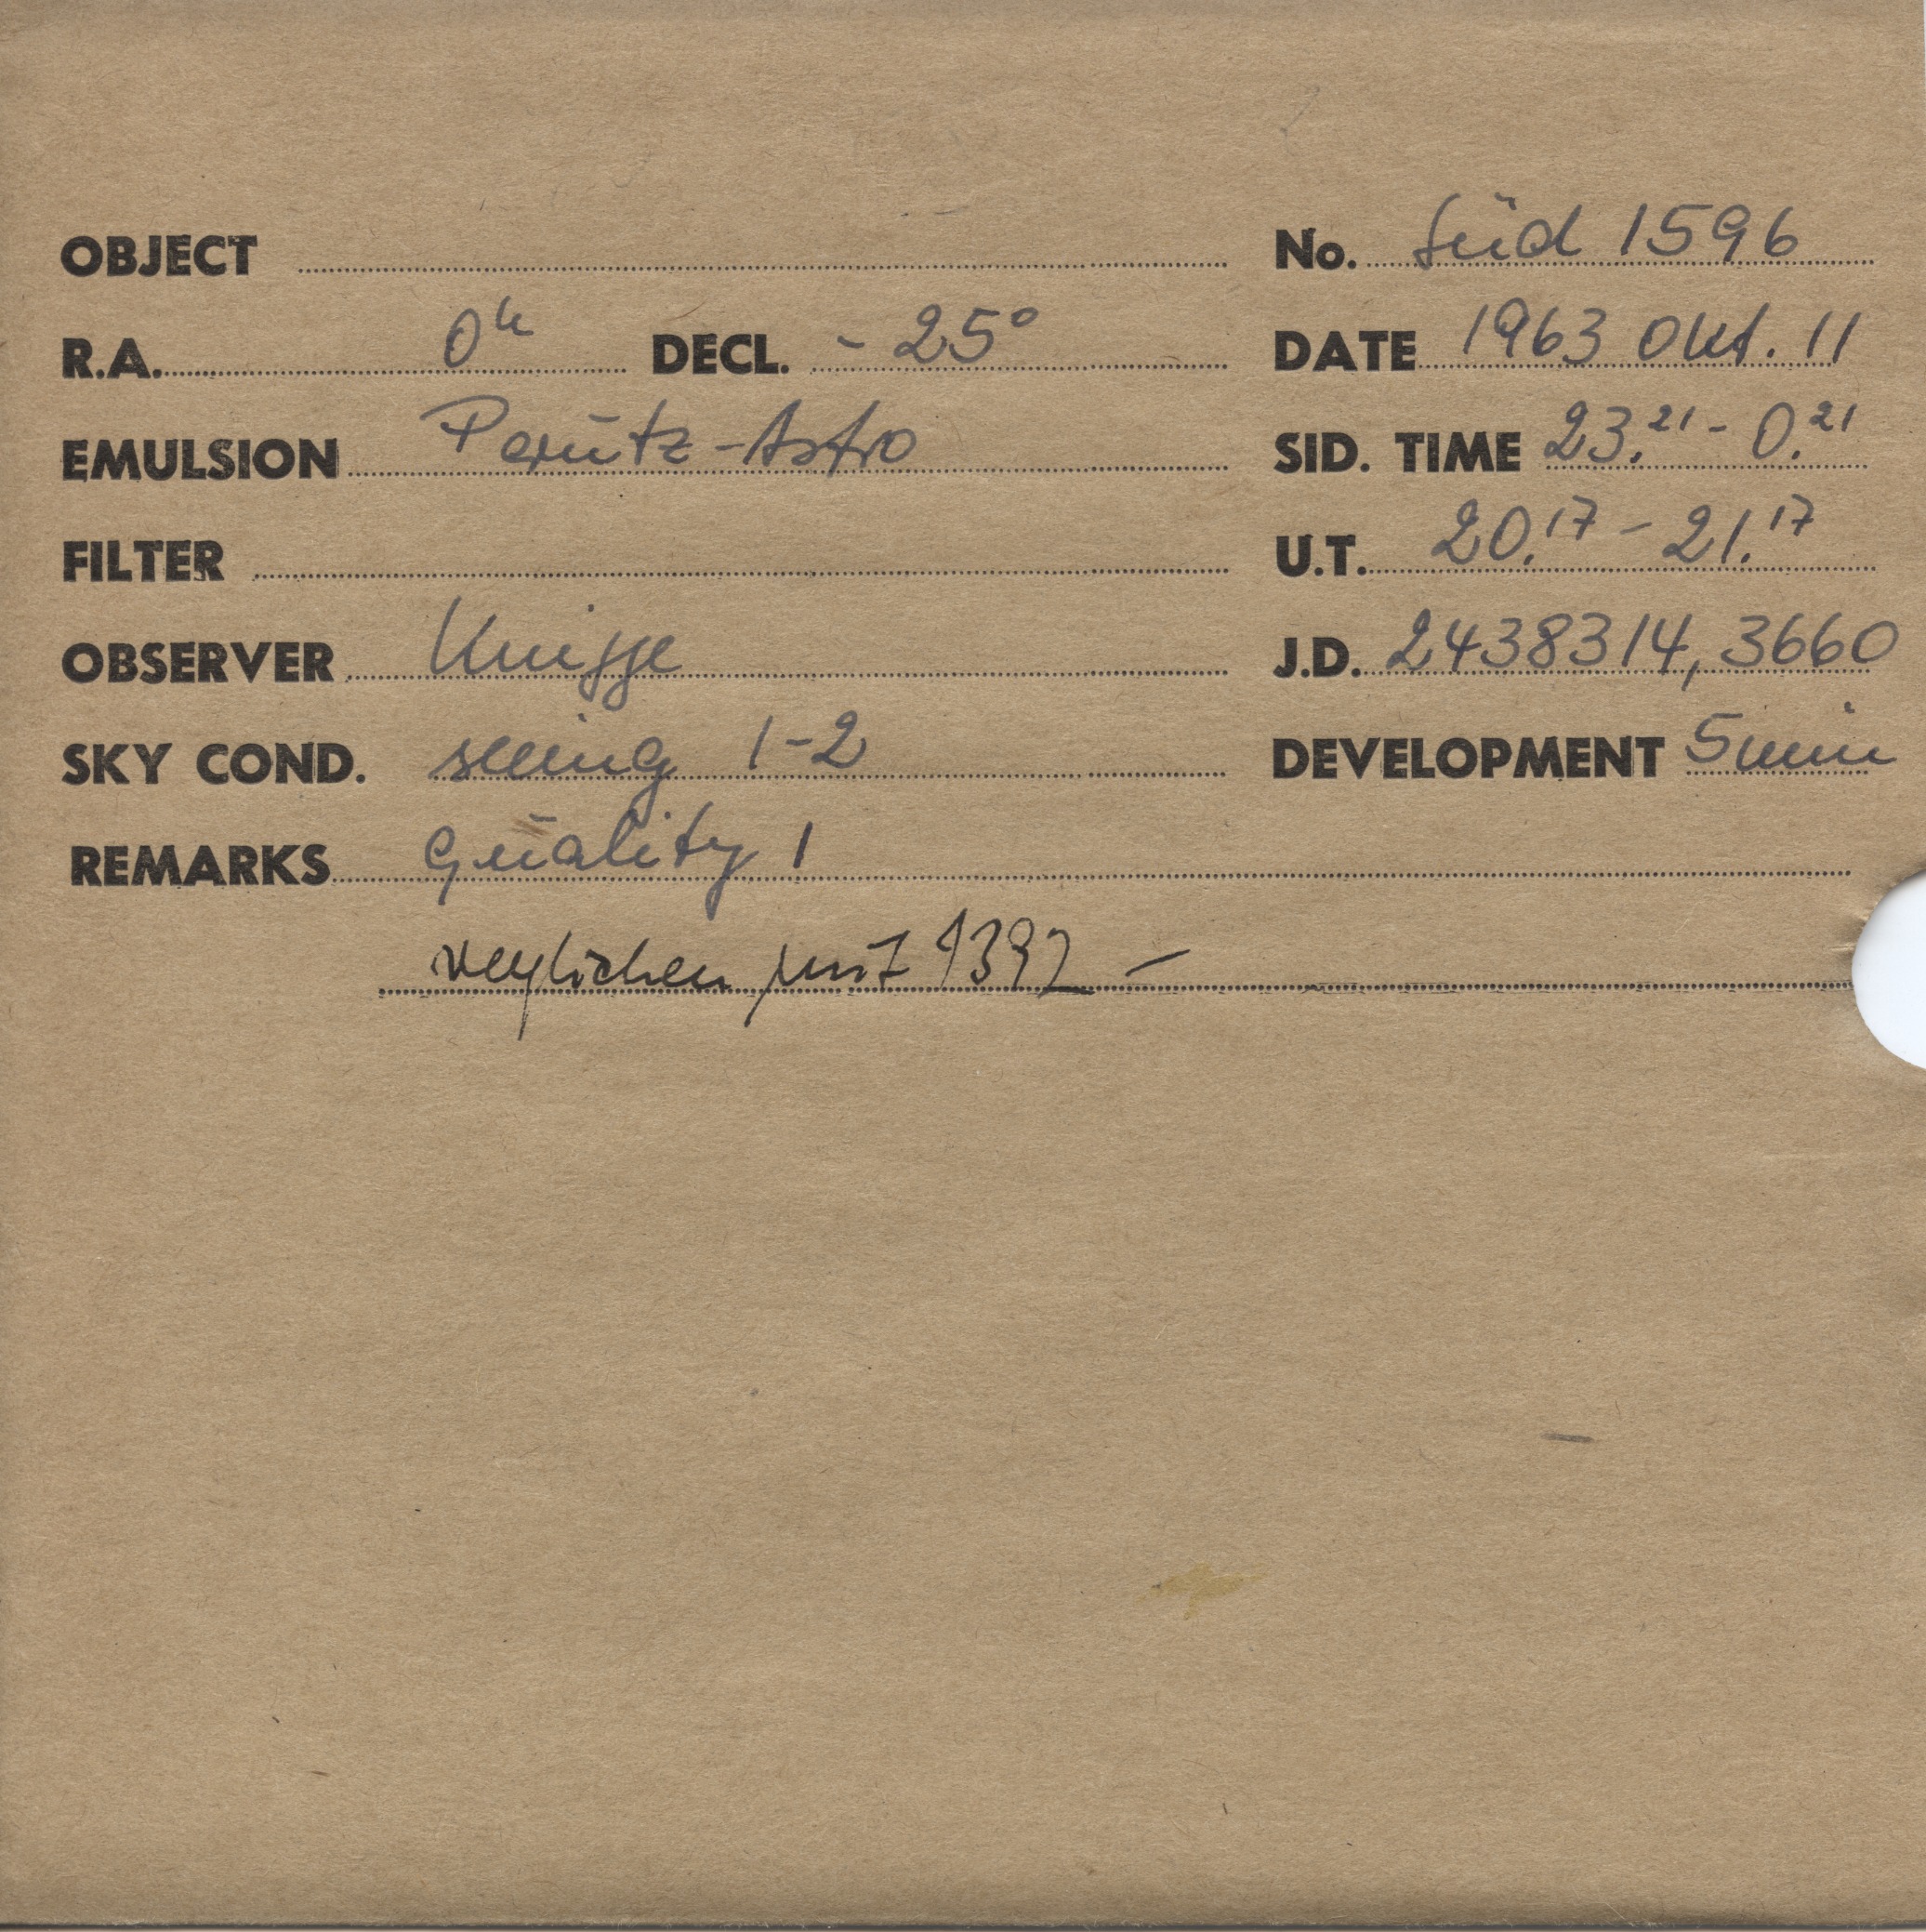 OBJECT
No. Süd 1596
R.A. 0h DECL. - 25°
DATE 1963 Okt. 11
EMULSION Perutz-Astro
SID. TIME 23.21 - 0.21
FILTER
U.T. 20.17 - 21.17
OBSERVER Knigge
J.D. 2438314,3660
SKY COND. seeing 1-2
DEVELOPMENT 5 min
REMARKS quality 1
verglichen mit 1392 -